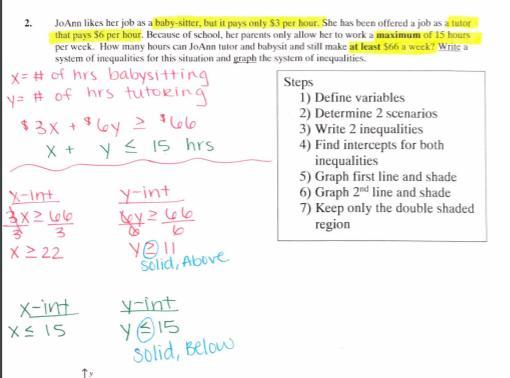 2. JoAnn likes her job as a baby-sitter, but it pays only $3 per hour. She has been offered a job as a tutor
that pays $6 per hour. Because of school, her parents only allow her to work a maximum of 15 hours
per week. How many hours can JoAnn tutor and babysit and still make at least $66 a week? Write a
system of inequalities for this situation and graph the system of inequalities.
x = # of hrs babysitting
y = # of hrs tutoring
$3x + $6y ≥ $66
x + y ≤ 15 hrs
Steps
1) Define variables
2) Determine 2 scenarios
3) Write 2 inequalities
4) Find intercepts for both
inequalities
5) Graph first line and shade
6) Graph 2nd line and shade
7) Keep only the double shaded
region
x-int y-int
3x ≥ 66 6y ≥ 66
3 3 6 6
x ≥ 22 y ≥ 11
solid, Above
x-int y-int
x ≤ 15 y ≤ 15
solid, Below
y